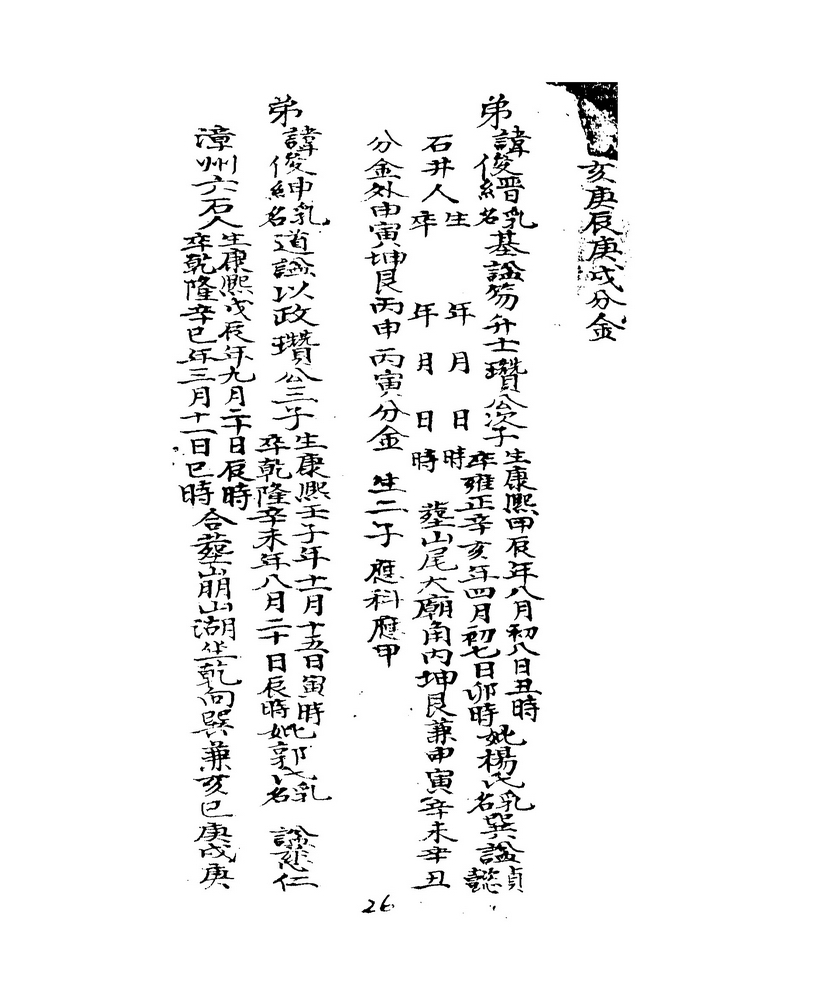 亥庚辰庚戌分金
弟諱俊晋乳名基諡笏弁士瓚公次子生康熙甲辰年八月初八日丑時卒雍正辛亥年四月初七日卯時妣楊氏乳名巽諡貞懿
石井人生 年 月 日 時卒 年 月 日 時 塟山尾大廟角内坤艮兼申寅辛未辛丑
分金外申寅坤艮丙申丙寅分金 生二子應科應甲
弟諱俊紳乳名道諡以政瓚公三子生康熙壬子年十一月十五日寅時卒乾隆辛未年八月二十日辰時妣郭氏乳名 諡慈仁
漳州六石人生康熙戊辰年九月二十日辰時卒乾隆辛巳年三月十一日巳時合塟山崩山湖坐乾向巽兼亥巳庚戌庚
26